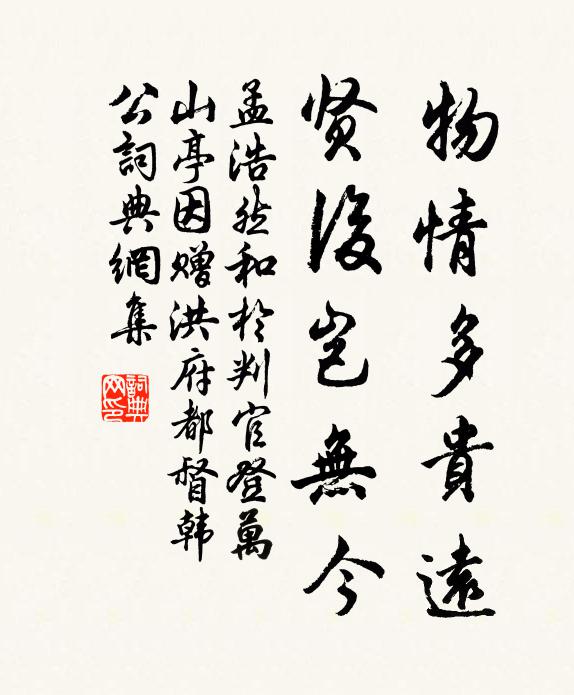 物情多貴遠
贤後岂無今
孟浩然和於判官登萬
山亭因赠洪府都督韩
公詞典網集
詞典網印